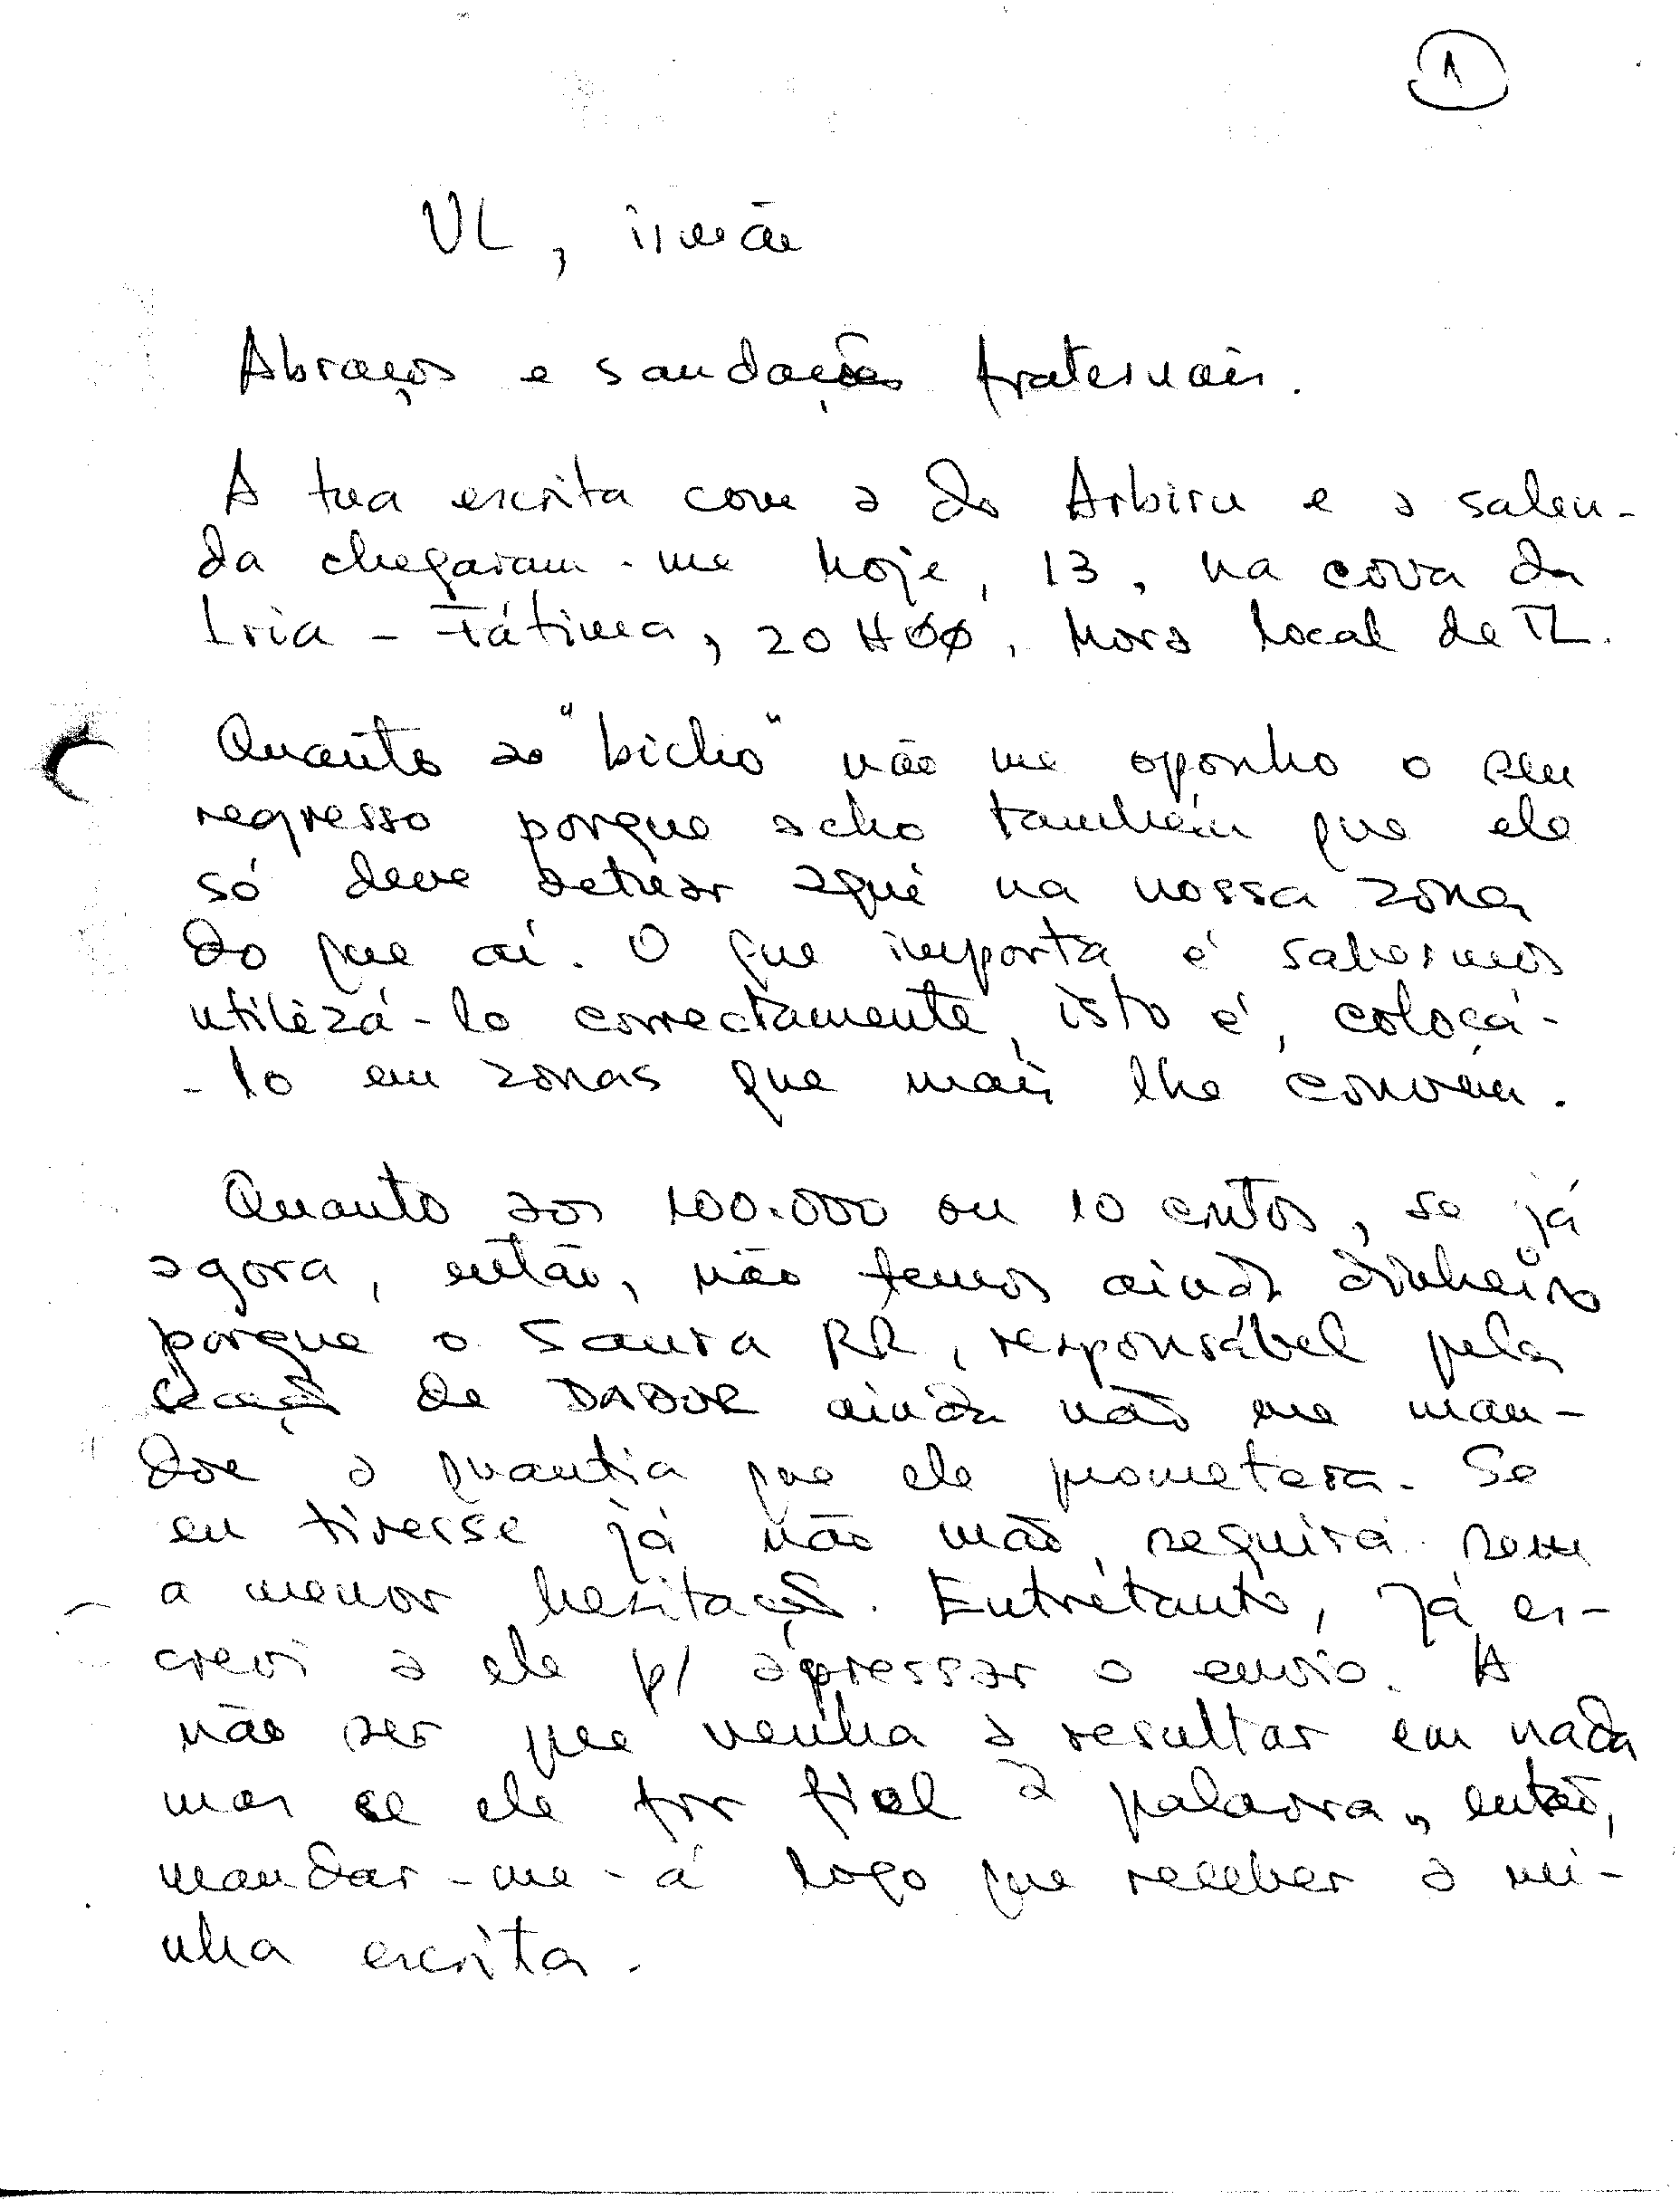 1
VL, irmão
Abraços e saudações fraternais.
A tua escrita com a do Arbiru e a salen-
da chegaram-me hoje, 13, na cova da
Iria - Fátima, 20H00, hora local de TL.
Quanto ao "bicho" não me oponho o seu
regresso porque acho também que ele
só deve actuar aqui na nossa zona
do que aí. O que importa é sabermos
utilizá-lo correctamente, isto é, colocá-
-lo em zonas que mais lhe convém.
Quanto aos 100.000 ou 10 contos, se já
agora, então, não temos ainda dinheiro
porque o Saura RR, responsável pela
secção de DABUR ainda não me man-
dou a quantia que ele prometera. Se
eu tivesse já não mão, seguirá sem
a menor hesitação. Entretanto, já es-
crevi a ele p/ apressar o envio. A
não ser que venha a resultar em nada
mas se ele for fiel à palavra, então,
mandar-me-á logo que receber a mi-
nha escrita.